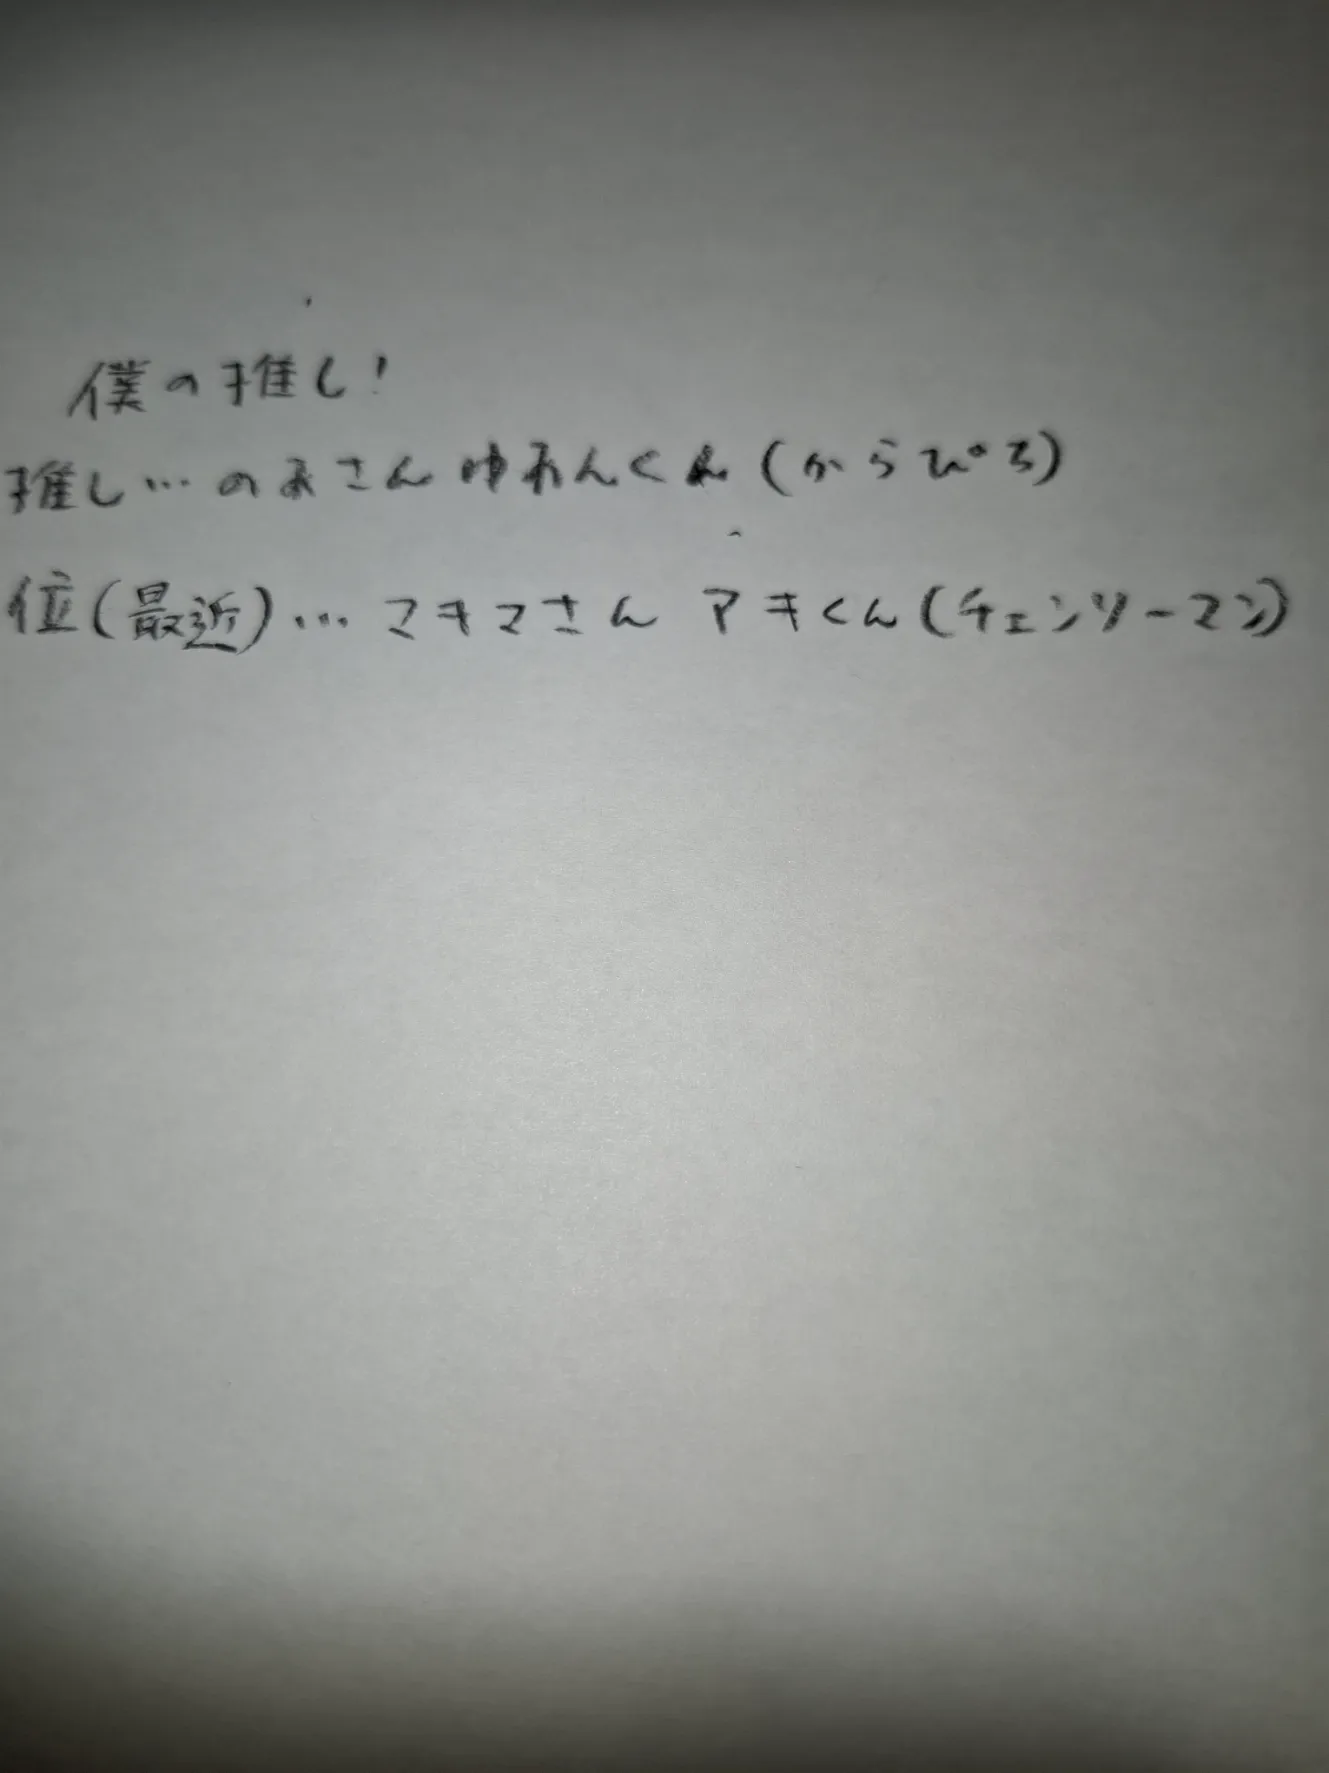 僕の推し!
推し…のあさんゆあんくん(からぴち)
位(最近)…マキマさん アキくん(チェンソーマン)